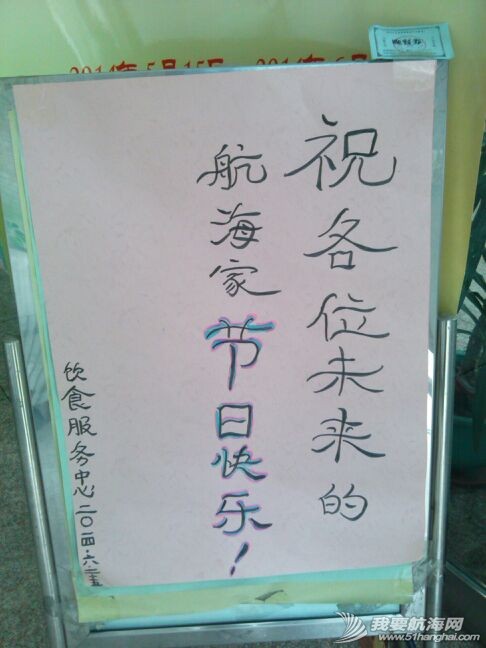 2014年5月15日 — 2014年6月
祝各位未来的
航海家节日快乐！
饮食服务中心二〇一四·六·二五
我要航海网
www.51hanghai.com